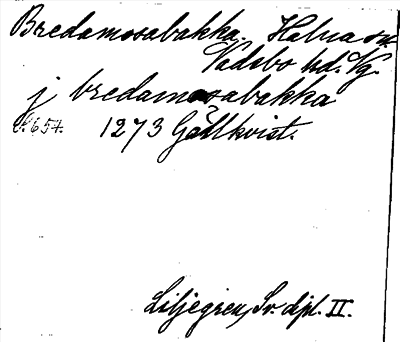 Bredamosabakka. Halna sn.
Vadsbo hd. Vg.
j bredamosabakka
s. 657. 1273 Gällkvist.
Liljegren, Sv. dipl. II.